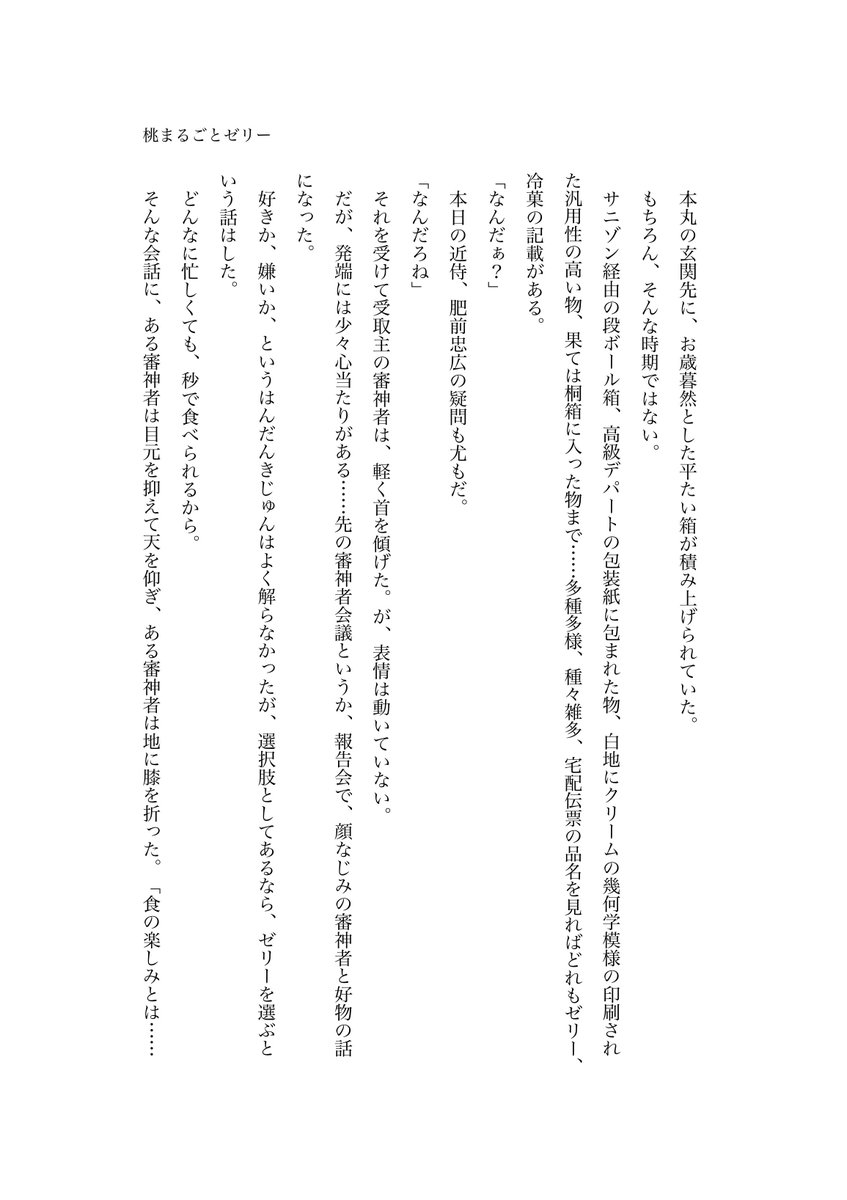 桃まるごとゼリー
本丸の玄関先に、お歳暮然とした平たい箱が積み上げられていた。
もちろん、そんな時期ではない。
サニゾン経由の段ボール箱、高級デパートの包装紙に包まれた物、白地にクリームの幾何学模様の印刷され
た汎用性の高い物、果ては桐箱に入った物まで……多種多様、種々雑多、宅配伝票の品名を見ればどれもゼリー、
冷菓の記載がある。
「なんだぁ？」
本日の近侍、肥前忠広の疑問も尤もだ。
「なんだろね」
それを受けて受取主の審神者は、軽く首を傾げた。が、表情は動いていない。
だが、発端には少々心当たりがある……先の審神者会議というか、報告会で、顔なじみの審神者と好物の話
になった。
好きか、嫌いか、というはんだんきじゅんはよく解らなかったが、選択肢としてあるなら、ゼリーを選ぶと
いう話はした。
どんなに忙しくても、秒で食べられるから。
そんな会話に、ある審神者は目元を抑えて天を仰ぎ、ある審神者は地に膝を折った。「食の楽しみとは……